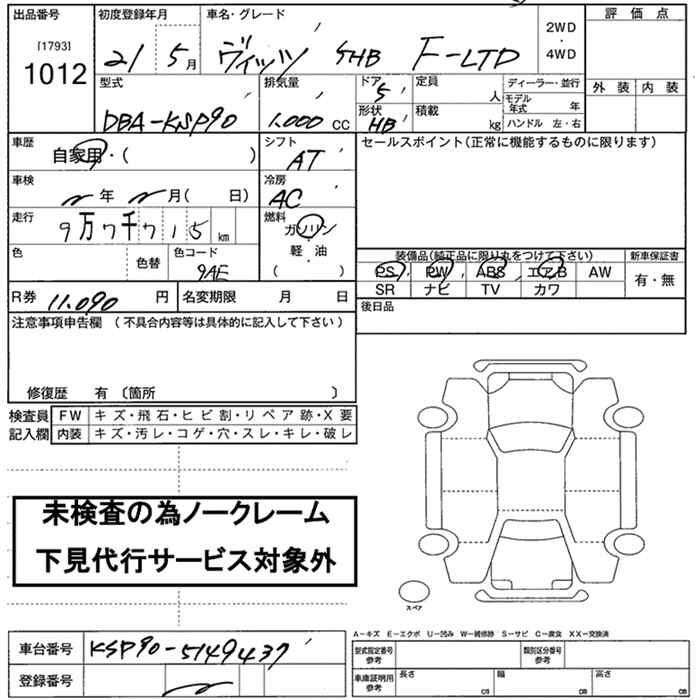 出品番号
[1793]
1012
初度登録年月
21 5月
車名・グレード
ヴィッツ 5HB F-LTD
2WD
・
4WD
評価点
外装 内装
型式
DBA-KSP90
排気量
1.000 CC
ドア
5
形状
HB
定員
人
積載
kg
ディーラー・並行
モデル年式 年
ハンドル 左・右
車歴
自家用・( )
シフト
AT
車検
年 月( 日)
冷房
AC
走行
9万7千715km
燃料
ガソリン
軽・油
( ・ )
色
色替
色コード
9AE
R券 11.090 円
名変期限 月 日
セールスポイント(正常に機能するものに限ります)
装備品(純正品に限り丸をつけて下さい)
PS PW ABS エアB AW
SR ナビ TV カワ
新車保証書
有・無
後日品
注意事項申告欄 (不具合内容等は具体的に記入して下さい)
修復歴 有 〔箇所 〕
検査員記入欄
FW キズ・飛石・ヒビ割・リペア跡・X要
内装 キズ・汚レ・コゲ・穴・スレ・キレ・破レ
未検査の為ノークレーム
下見代行サービス対象外
スペア
A-キズ E-エクボ U-凹み W-補修跡 S-サビ C-腐食 XX-交換済
車台番号 KSP90-5149437
登録番号
型式指定番号 参考
類別区分番号 参考
車庫証明用 参考
長さ cm
幅 cm
高さ cm